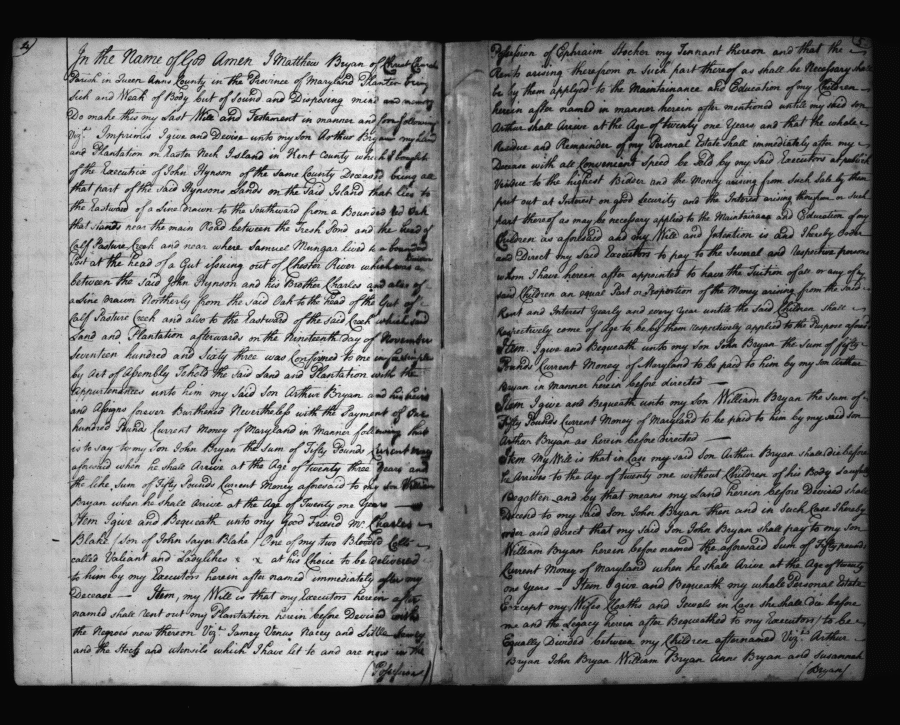 4)
In the Name of God Amen I Matthew Bryan of Christ Church
Parish in Queen Anns County in the Province of Maryland Planter being
Sick and Weak of Body but of Sound and Disposing mind and memory
Do make this my Last Will and Testament in manner and form following
Vizt. Imprimis I give and Devise unto my Son Arthur Bryan my land
and Plantation on Easter Neck Island in Kent County which I bought
of the Executrix of John Hynson of the Same County Deceased being all
that part of the Said Hynsons Lands on the Said Island that lies to
the Eastward of a Line drawn to the Southward from a Bounded Red Oak
that stands near the main Road between the Fresh Pond and the head of
Calf Pasture Creek and near where Samuel Mungar lived to a bounded
Post at the head of a Gut issuing out of Chester River which was a
between the Said John Hynson and his Brother Charles and also of
a Line drawn Northerly from the Said Oak to the head of the Gut of
Calf Pasture Creek and also to the Eastward of the Said Creek which said
Land and Plantation afterwards on the Nineteenth day of November
Seventeen hundred and Sixty three was Confirmed to me
by Act of Assembly To hold the Said Land and Plantation with the
Appurtenances unto him my Said Son Arthur Bryan and his heirs
and Assigns forever Burthened Nevertheless with the Payment of One
hundred Pound Current Money of Maryland in Manner following that
is to say to my Son John Bryan the Sum of Fifty Pounds Current money
aforesaid when he shall Arrive at the Age of twenty three Years and
the like Sum of Fifty Pounds Current Money aforesaid to my Son William
Bryan when he shall Arrive at the Age of Twenty one Years
Item I give and Bequeath unto my Good Friend Mr. Charles
Blake (Son of John Sayer Blake) One of my two Blooded Colts
called Valiant and Ladylikes x x at his Choice to be delivered
to him by my Executors herein after named immediately after my
Decease — Item, my Will is that my Executors herein after
named shall Rent out my Plantation herein before Devised with
the Negroes now thereon Vizt. Jamey Venus Nacey and
and the Stock and utensils which I have let to and are now in the
(Possession)
Possession of Ephraim Stocker my Tennant thereon and that the
Rents arising therefrom or Such part thereof as shall be Necessary shall
be by them applyed to the Maintainance and Education of my Children
herein after named in manner herein after mentioned untill my said son
Arthur shall Arrive at the Age of twenty one Years and that the whole
Residue and Remainder of my Personal Estate shall immediately after my
Decease with all Convenient Speed be Sold by my Said Executors at publick
Vendue to the highest Bidder and the Money arising from Such Sale by them
put out at Interest on good Security and the Interest arising therefrom or Such
part thereof as may be necessary applied to the Maintainance and Education of my
Children as aforesaid and my Will and Intention is and I hereby order
and Direct my Said Executors to pay to the Several and Respective persons
whom I have herein after appointed to have the Tuition of all or any of my
said Children an equal Part or Proportion of the Money arising from the said
Rent and Interest Yearly and every Year untill the Said Children shall
Respectively come of Age to be by them respectively applied to the Purpose aforesd.
Item. I give and Bequeath unto my Son John Bryan the Sum of fifty
Pounds Current Money of Maryland to be paid to him by my Son Arthur
Bryan in Manner herein before directed —
Item I give and Bequeath unto my Son William Bryan the Sum of
Fifty Pounds Current Money of Maryland to be paid to him by my said Son
Arthur Bryan as herein before directed —
Item My Will is that in Case my said Son Arthur Bryan shall die before
he Arrives to the Age of twenty one without Children of his Body Lawfully
Begotten and by that means my Land herein before Devised shall
descend to my Said Son John Bryan then and in Such Case I hereby
order and direct that my Said Son John Bryan shall pay to my Son
William Bryan herein before named the aforesaid Sum of Fifty pounds
Current Money of Maryland when he shall Arive at the Age of twenty
one Years — Item I give and Bequeath my whole Personal Estate
Except my Wifes Cloaths and Jewels in Case she shall die before
me and the Legacy herein after Bequeathed to my Executors to be
Equally Divided between my Children afternamed Vizt. Arthur
Bryan John Bryan William Bryan Anns Bryan and Susannah
(Bryan)